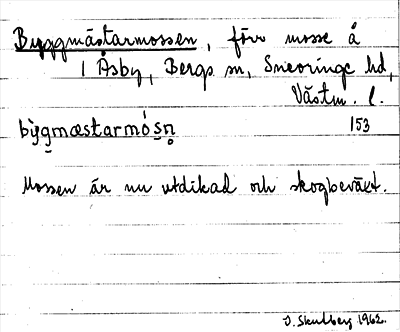 Byggmästarmossen, förr mosse å
1 Åsby, Bergs sn, Snevringe hd,
Västm. l.
bỳg̱mæstarmós̱n̥ 153
Mossen är nu utdikad och skogbeväxt.
J. Skulberg 1962.